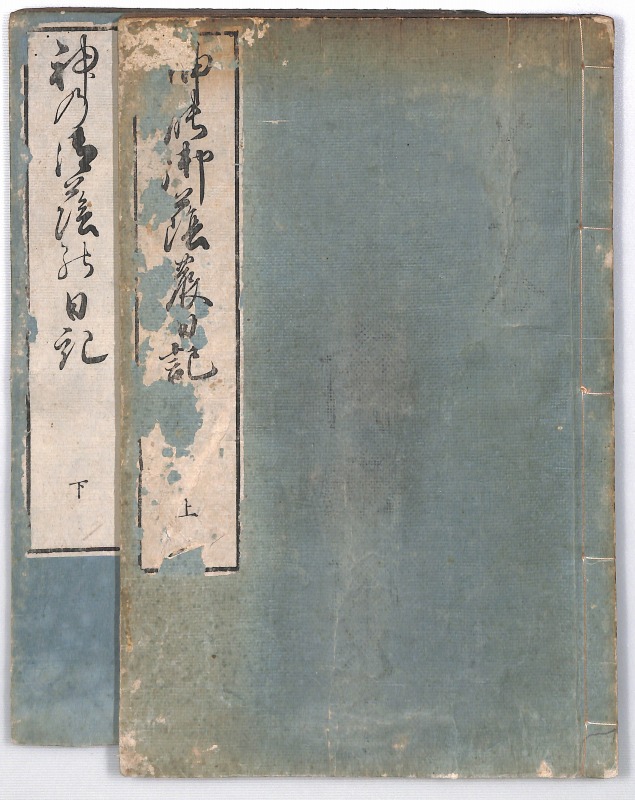 神能御蔭農日記
上
神乃御蔭能日記
下